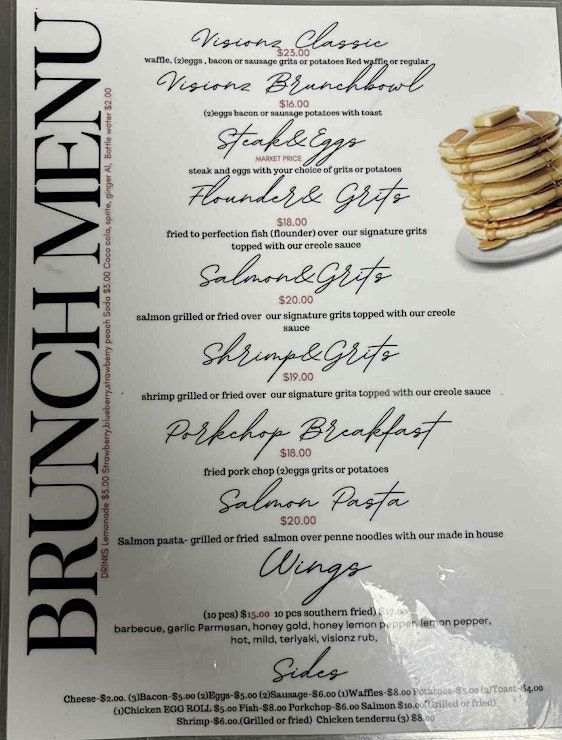 BRUNCH MENU
DRINKS Lemonade $5.00 Strawberry,blueberry,strawberry peach Soda $3.00 Coco cola, sprite, ginger Al, Bottle water $2.00
Visionz Classic
$23.00
waffle, (2)eggs , bacon or sausage grits or potatoes Red waffle or regular
Visionz Brunchbowl
$16.00
(2)eggs bacon or sausage potatoes with toast
Steak&Eggs
MARKET PRICE
steak and eggs with your choice of grits or potatoes
Flounder& Grits
$18.00
fried to perfection fish (flounder) over our signature grits
topped with our creole sauce
Salmon&Grits
$20.00
salmon grilled or fried over our signature grits topped with our creole
sauce
Shrimp&Grits
$19.00
shrimp grilled or fried over our signature grits topped with our creole sauce
Porkchop Breakfast
$18.00
fried pork chop (2)eggs grits or potatoes
Salmon Pasta
$20.00
Salmon pasta- grilled or fried salmon over penne noodles with our made in house
Wings
(10 pcs) $15.00 10 pcs southern fried) $17.00
barbecue, garlic Parmesan, honey gold, honey lemon pepper, lemon pepper,
hot, mild, teriyaki, visionz rub,
Sides
Cheese-$2.00. (3)Bacon-$5.00 (2)Eggs-$5.00 (2)Sausage-$6.00 (1)Waffles-$8.00 Potatoes-$5.00 (2)Toast-$4.00
(1)Chicken EGG ROLL $5.00 Fish-$8.00 Porkchop-$6.00 Salmon $10.00(Grilled or fried)
Shrimp-$6.00.(Grilled or fried) Chicken tendersu (3) $8.00